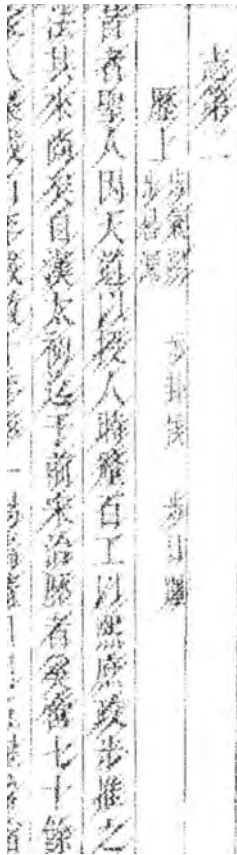 志第二
歷上 步氣朔 步卦候 步日躔
步晷漏
昔者聖人因天道以授人時釐百工以熙庶績步推之
法其來尚矣自漢太初迄于前宋治歷者奚啻七十餘